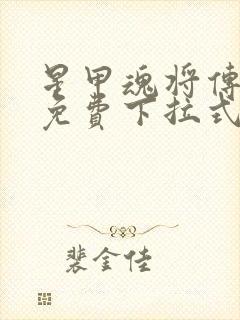 星甲魂将傳
免費下拉式
裴金佳